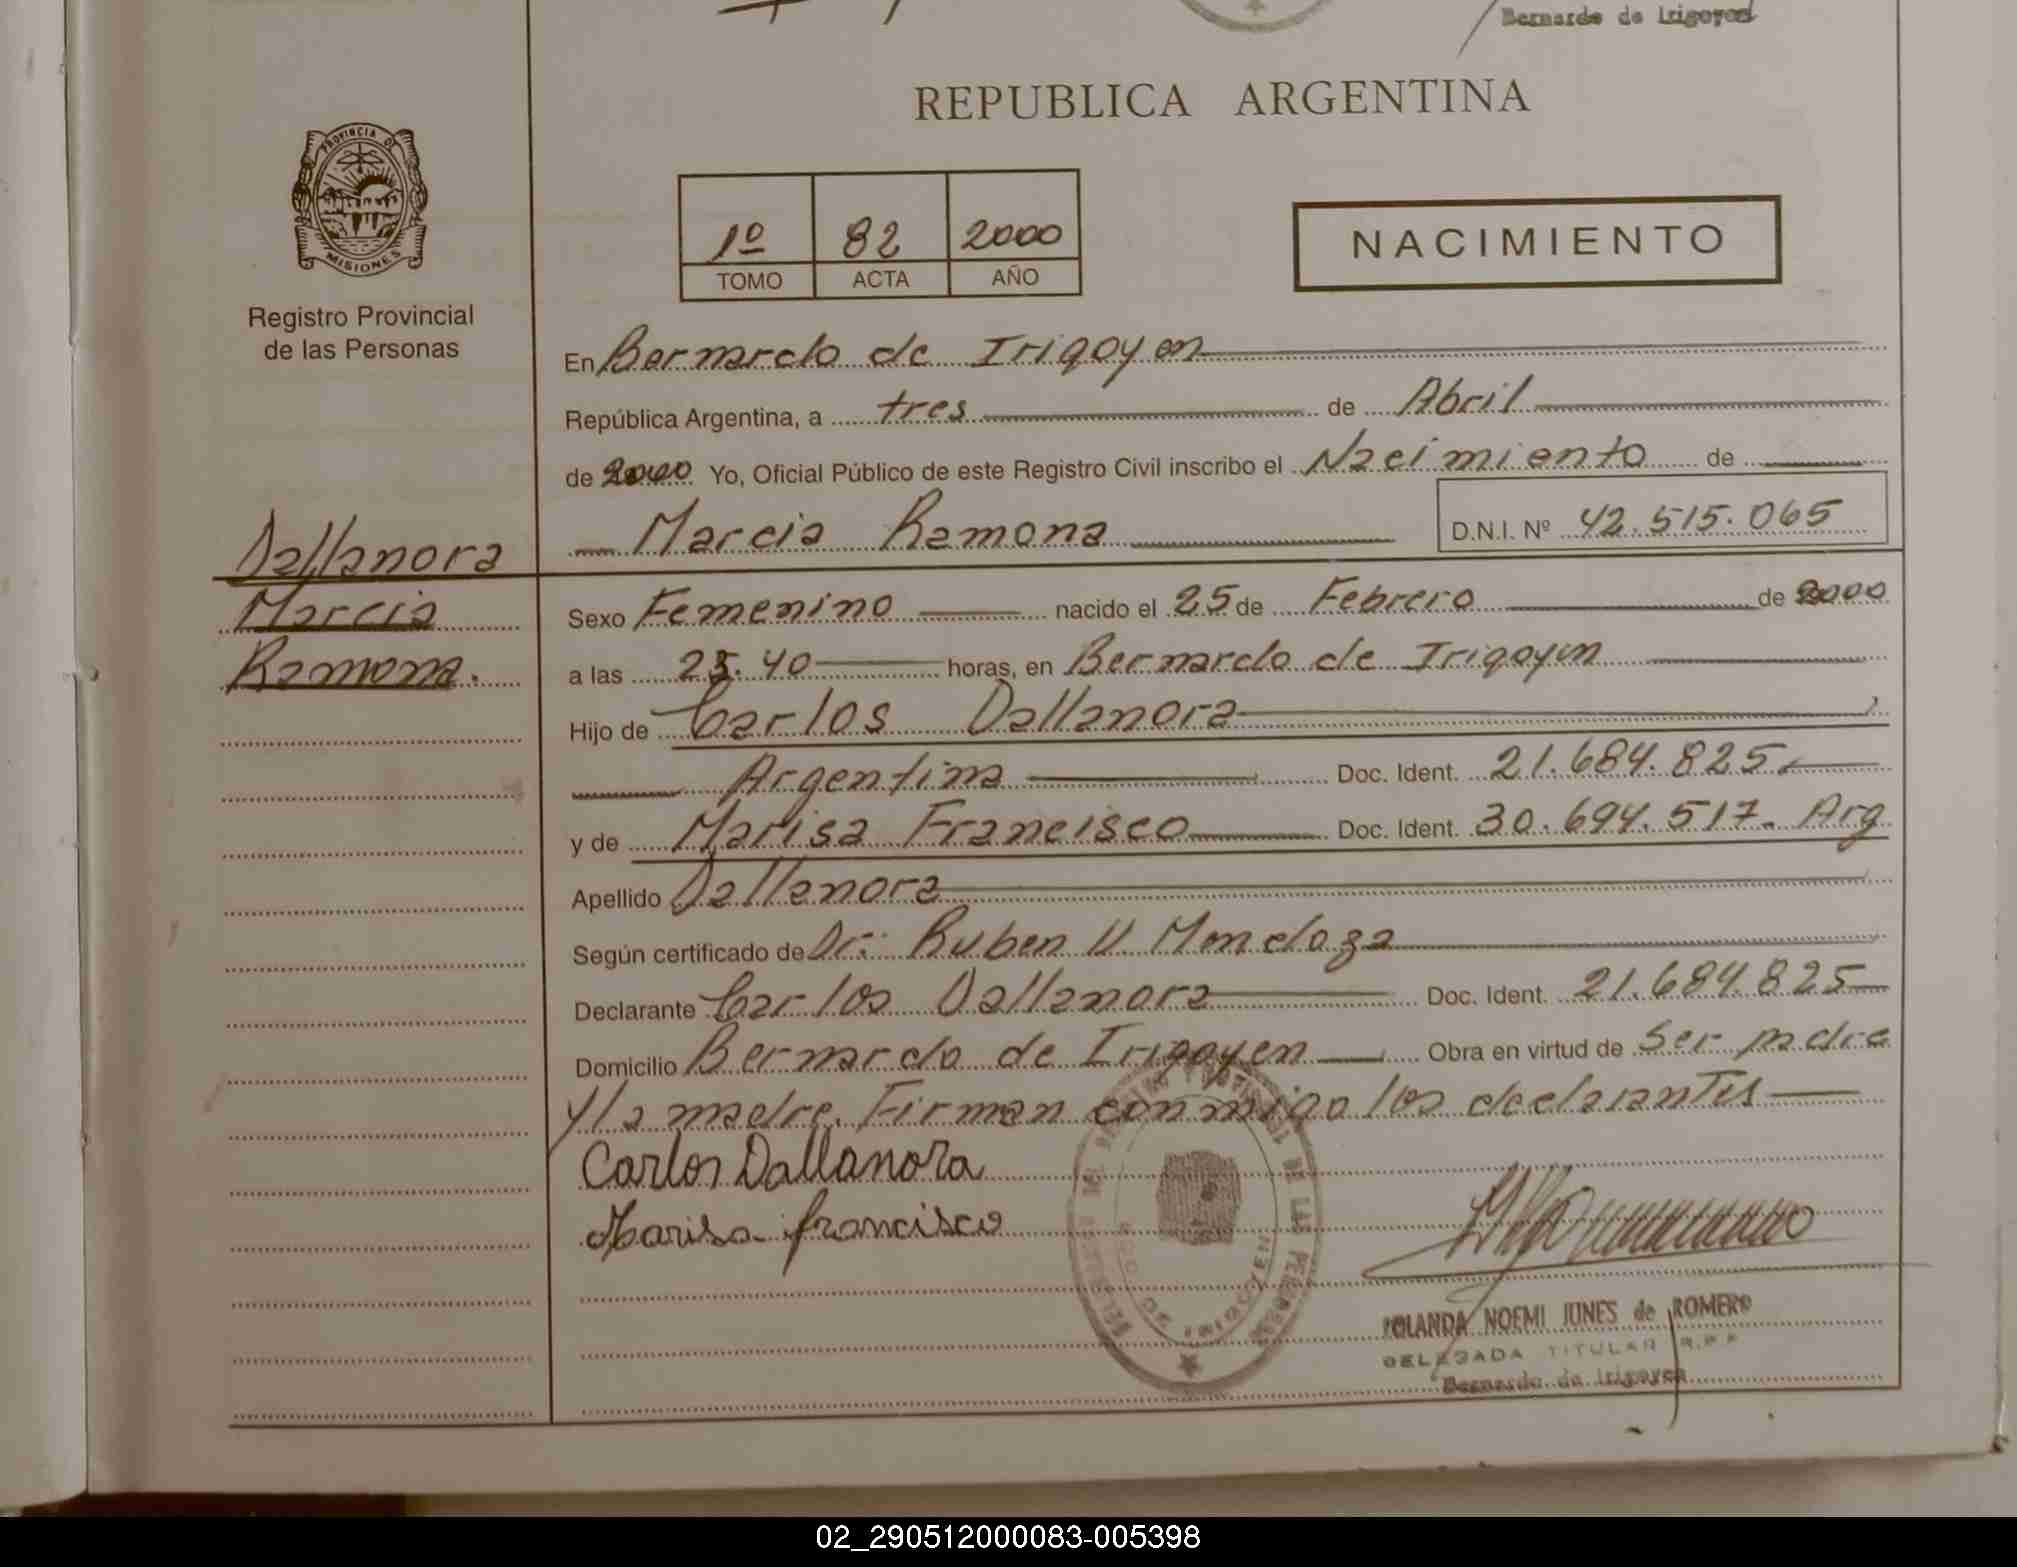 Bernardo de Irigoyen
REPUBLICA ARGENTINA
PROVINCIA DE
MISIONES
Registro Provincial
de las Personas
1º 82 2000
TOMO ACTA AÑO
NACIMIENTO
En Bernardo de Irigoyen
República Argentina, a tres de Abril
de 2000 Yo, Oficial Público de este Registro Civil inscribo el Nacimiento de
Marcia Ramona D.N.I. Nº 42.515.065
Dallanora
Marcia
Ramona.
Sexo Femenino nacido el 25 de Febrero de 2000
a las 23.40 horas, en Bernardo de Irigoyen
Hijo de Carlos Dallanora
Argentina Doc. Ident. 21.684.825.
y de Marisa Francisco Doc. Ident. 30.694.517. Arg
Apellido Dallanora
Según certificado de Dr: Ruben U Mendoza
Declarante Carlos Dallanora Doc. Ident. 21.684.825
Domicilio Bernardo de Irigoyen Obra en virtud de Ser padre
y la madre. Firman conmigo los declarantes
Carlos Dallanora
Marisa francisco
YOLANDA NOEMI JUNES de ROMERO
DELEGADA TITULAR R.P.P
Bernardo de Irigoyen
02_290512000083-005398